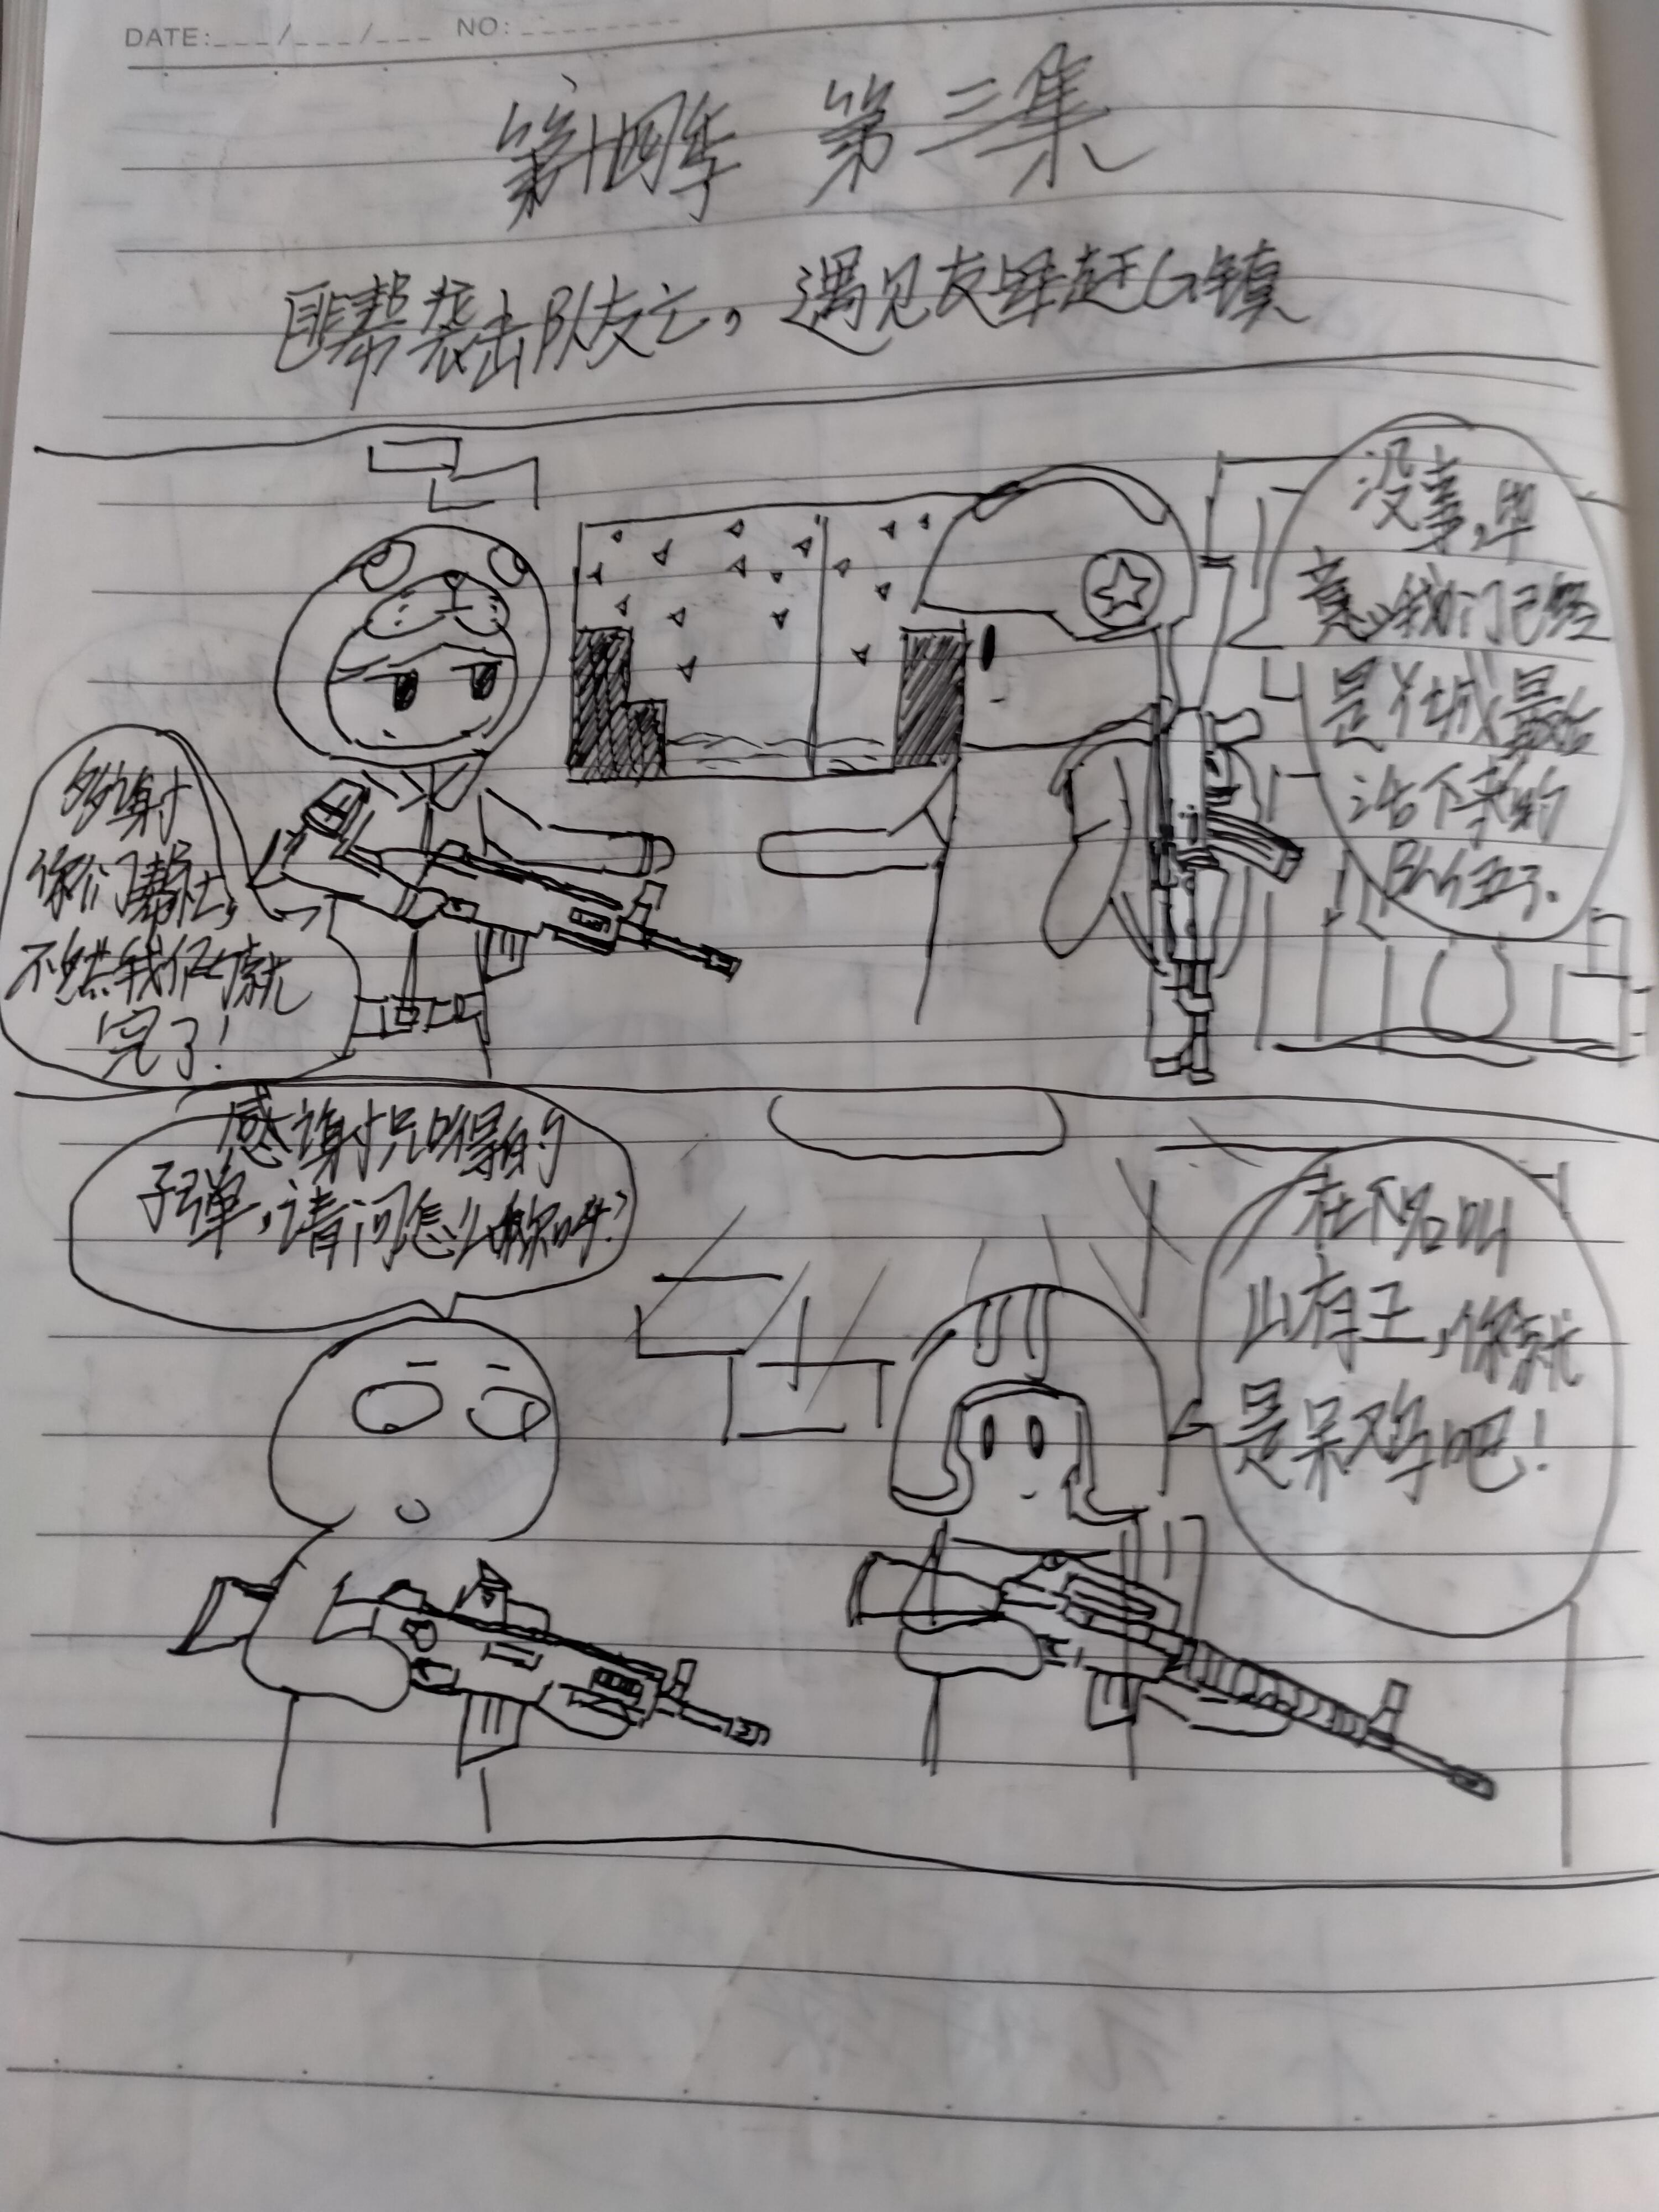 DATE:___/___/___ NO:_______
第十四季 第三集
匪帮袭击队友亡,遇见友军赶G镇
没事,毕
竟,我们已经
是Y城最后
活下来的
队伍了.
多谢
你们帮住,
不然我们就
完了!
感谢兄得的
子弹,请问怎么称呼?
在下名叫
山存王,你就
是呆鸡吧!